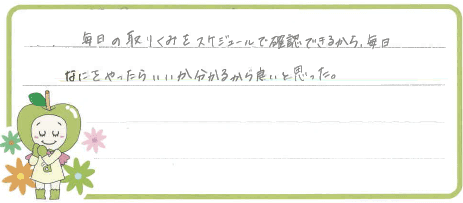 毎日の取りくみをスケジュールで確認できるから、毎日
なにをやったらいいか分かるから良いと思った。